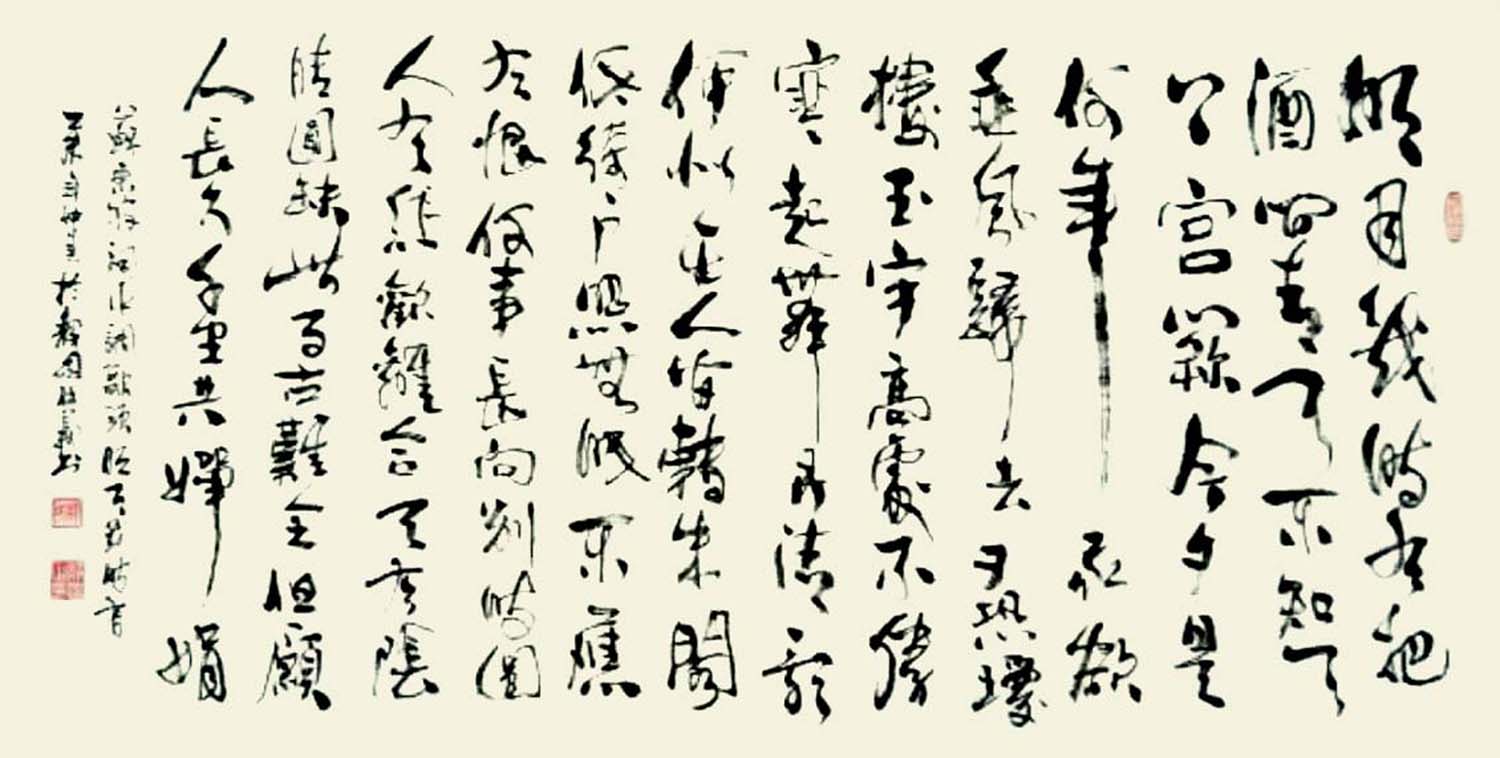 明月幾時有把
酒問青天不知天
上宮闕今夕是
何年我欲
乘風歸去又恐瓊
樓玉宇高處不勝
寒起舞弄清影
何似在人間轉朱閣
低綺戶照無眠不應
有恨何事長向別時圓
人有悲歡離合月有陰
晴圓缺此事古難全但願
人長久千里共嬋娟
蘇東坡詞水調歌頭明月幾時有